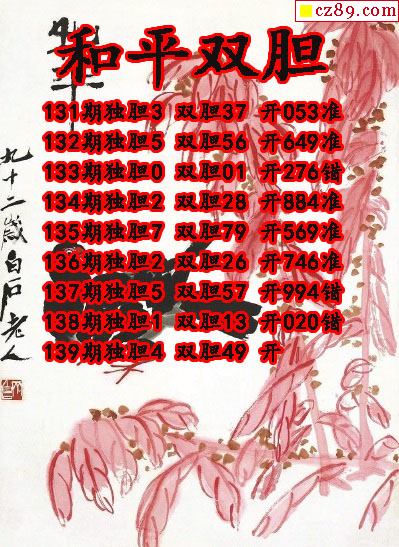 cz89.com
和平
和平双胆
131期独胆3 双胆37 开053准
132期独胆5 双胆56 开649准
133期独胆0 双胆01 开276错
134期独胆2 双胆28 开884准
135期独胆7 双胆79 开569准
136期独胆2 双胆26 开746准
137期独胆5 双胆57 开994错
138期独胆1 双胆13 开020错
139期独胆4 双胆49 开
九十二歲白石老人